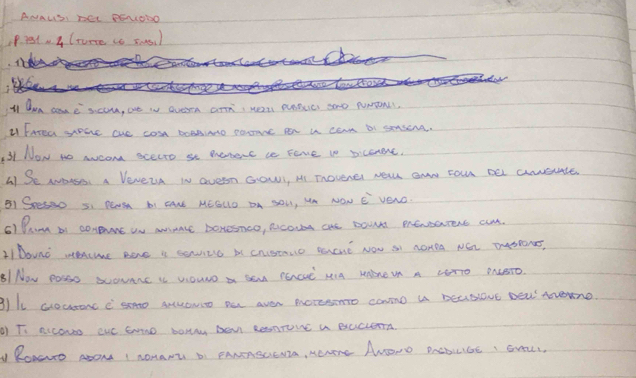 ANALISI DEL PERIODO
P. 391 n. 4 (TUTTE LE FRASI)
1) UNA COSA È SICURA, CHE IN QUESTA CITTÀ I MEZZI PUBBLICI SONO PUNTUALI.
2) FATECI SAPERE CHE COSA DOBBIAMO PORTARE PER LA CENA DI STASERA.
3) NON HO ANCORA SCELTO SE PRENDERE LE FERIE IN DICEMBRE.
4) SE ANDASSI A VENEZIA IN QUESTI GIORNI, MI TROVEREI NELLA GRAN FOLLA DEL CARNEVALE.
5) SPESSO SI PENSA DI FARE MEGLIO DA SOLI, MA NON È VERO.
6) PRIMA DI COMPRARE UN ANIMALE DOMESTICO, RICORDA CHE DOVRAI PRENDERTENE CURA.
7) DOVRÒ IMBALLARE BENE IL SERVIZIO DI CRISTALLO PERCHÉ NON SI ROMPA NEL TRASPORTO.
8) NON POSSO SUONARE IL VIOLINO DI SERA PERCHÉ MIA MADRE VA A LETTO PRESTO.
9) IL GIOCATORE È STATO AMMONITO PER AVER PROTESTATO CONTRO LA DECISIONE DELL'ARBITRO.
0) TI RICORDO CHE ENTRO DOMANI DEVI RESTITUIRE LA BICICLETTA.
ROBERTO ADORA I ROMANZI DI FANTASCIENZA, MENTRE ANTONIO PREDILIGE I GIALLI.